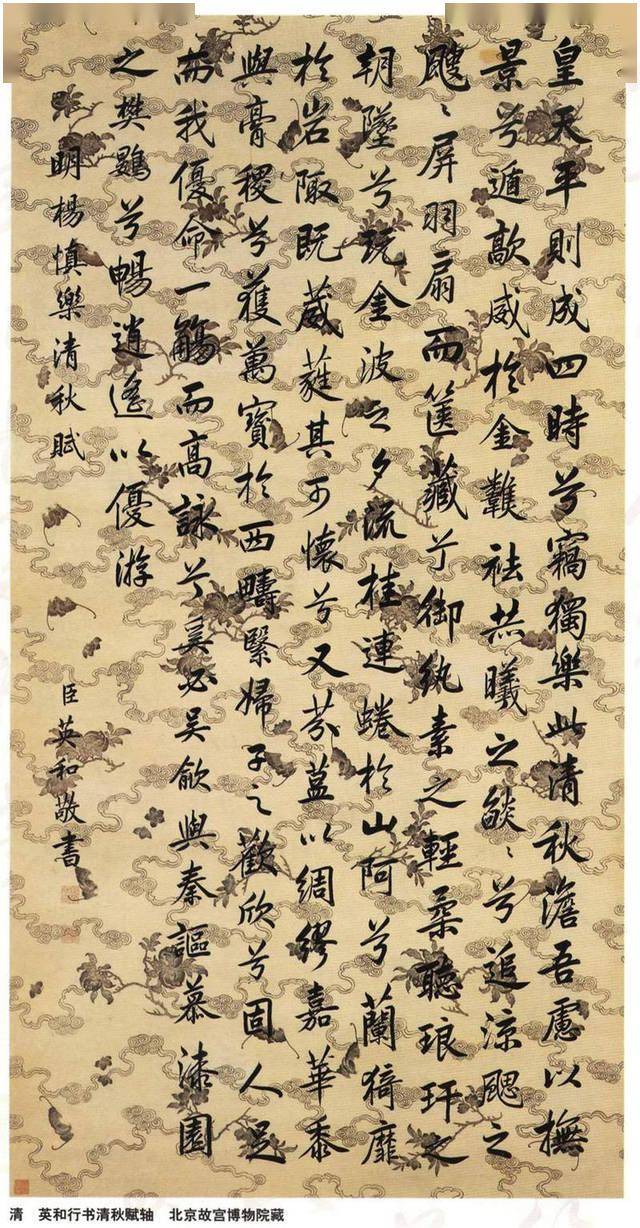 皇天平則成四時兮竊獨樂此清秋澹吾慮以撫
景兮遁歊威於金祛曦之燄〻兮追涼颸之
颼〻屏羽扇而篋藏兮御紈素之輕柔聽琅玕之
朝墜兮玩金波之夕流桂連蜷於山阿兮蘭猗靡
於岩陬既葳蕤其可懷兮又芬蒀以綢繆嘉華黍
與膏稷兮獲萬寶於西疇繄婦子之歡欣兮固人足
而我優命一觴而高詠兮奚必吳歈與秦謳慕漆園
之樊鷃兮暢逍遙以優游
明楊慎樂清秋賦
臣英和敬書
清 英和行书清秋赋轴 北京故宫博物院藏